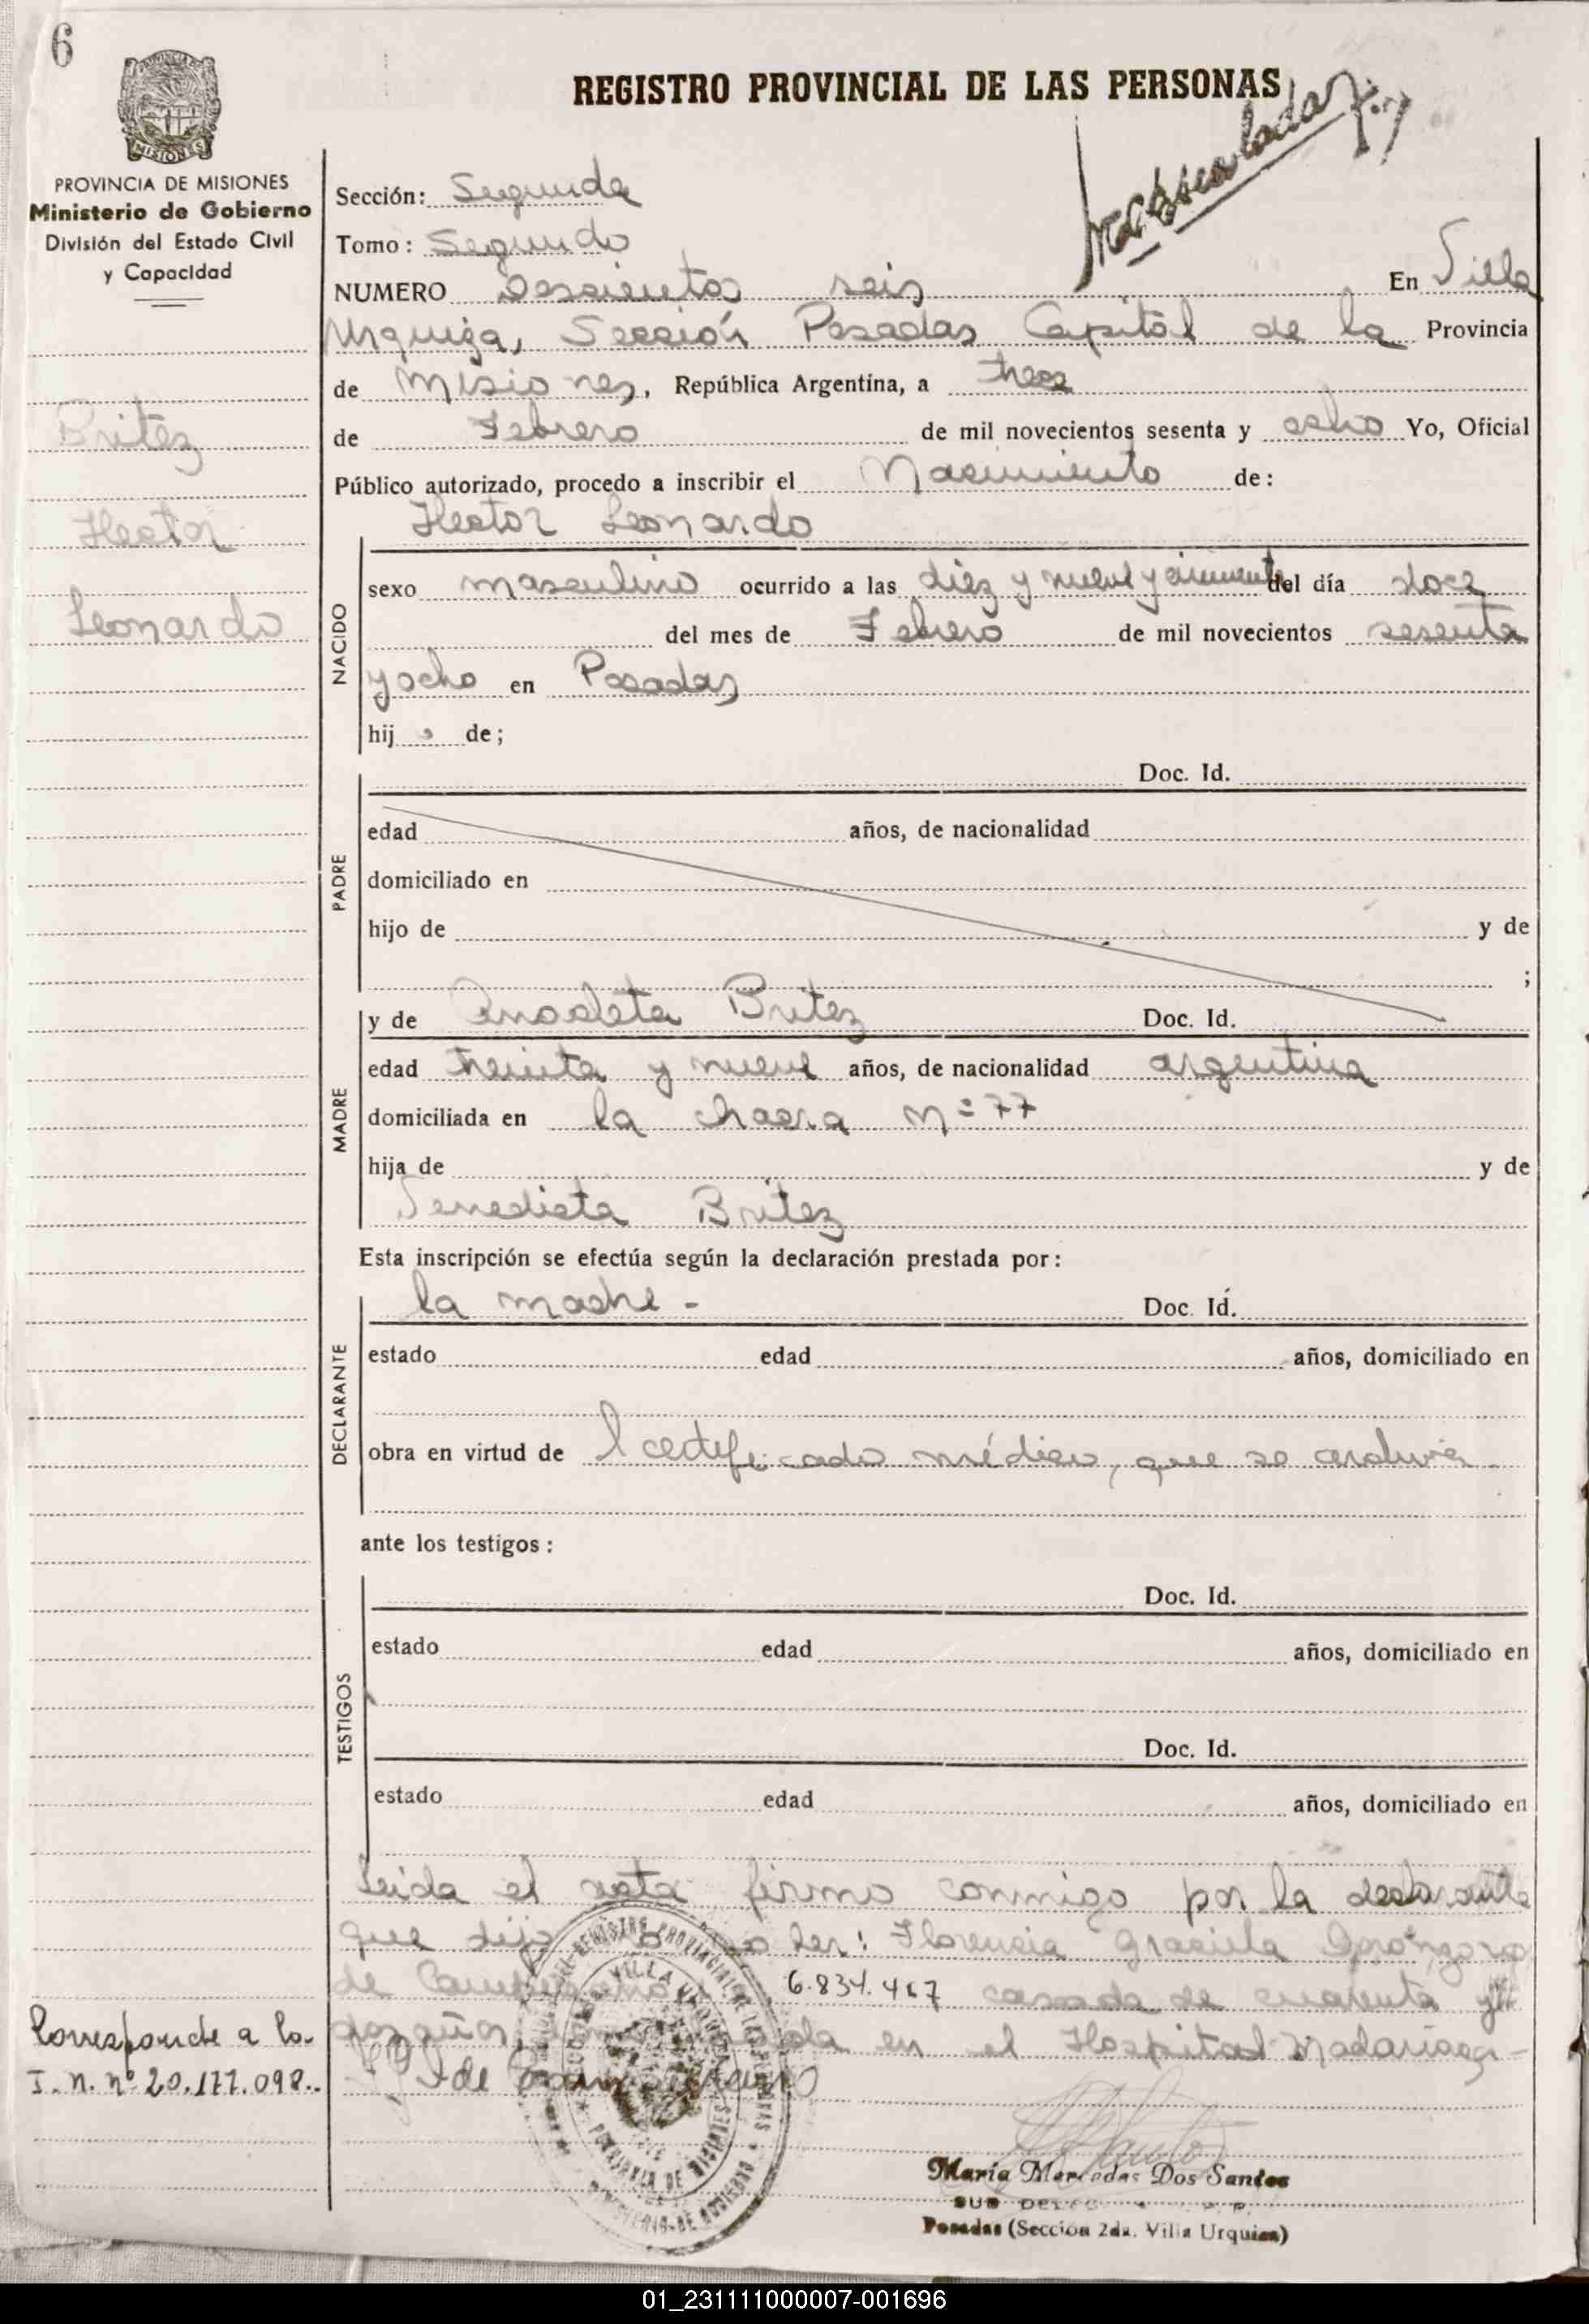 6
REGISTRO PROVINCIAL DE LAS PERSONAS
MISIONES
PROVINCIA DE MISIONES
Ministerio de Gobierno
División del Estado Civil
y Capacidad
Britez
Hector
Leonardo
Sección: Segunda
Tomo: Segundo
NUMERO Doscientos seis En Villa
Urquiza, Sección Posadas Capital de la Provincia
de Misiones, República Argentina, a trece
de Febrero de mil novecientos sesenta y ocho Yo, Oficial
Público autorizado, procedo a inscribir el Nacimiento de:
Hector Leonardo
NACIDO
sexo masculino ocurrido a las diez y nueve y cincuenta del día doce
del mes de Febrero de mil novecientos sesenta
y ocho en Posadas
hijo de;
PADRE
Doc. Id.
edad años, de nacionalidad
domiciliado en
hijo de y de
;
MADRE
y de Anacleta Britez Doc. Id.
edad treinta y nueve años, de nacionalidad argentina
domiciliada en la chacra Nº 77
hija de y de
Benedicta Britez
Esta inscripción se efectúa según la declaración prestada por:
DECLARANTE
la madre - Doc. Id.
estado edad años, domiciliado en
obra en virtud de l certificado médico, que se archiva
ante los testigos:
TESTIGOS
Doc. Id.
estado edad años, domiciliado en
Doc. Id.
estado edad años, domiciliado en
Leida el acta firmo conmigo por la declarante
que dijo ser: Florencia Graciela
de 6.834.467 casada de cuarenta y
dos años, en el Hospital Madariaga
de
Corresponde a la
I. N. nº 20.177.098..
VILLA URQUIZA
María Mercedes Dos Santos
SUB
Posadas (Sección 2da. Villa Urquiza)
01_231111000007-001696